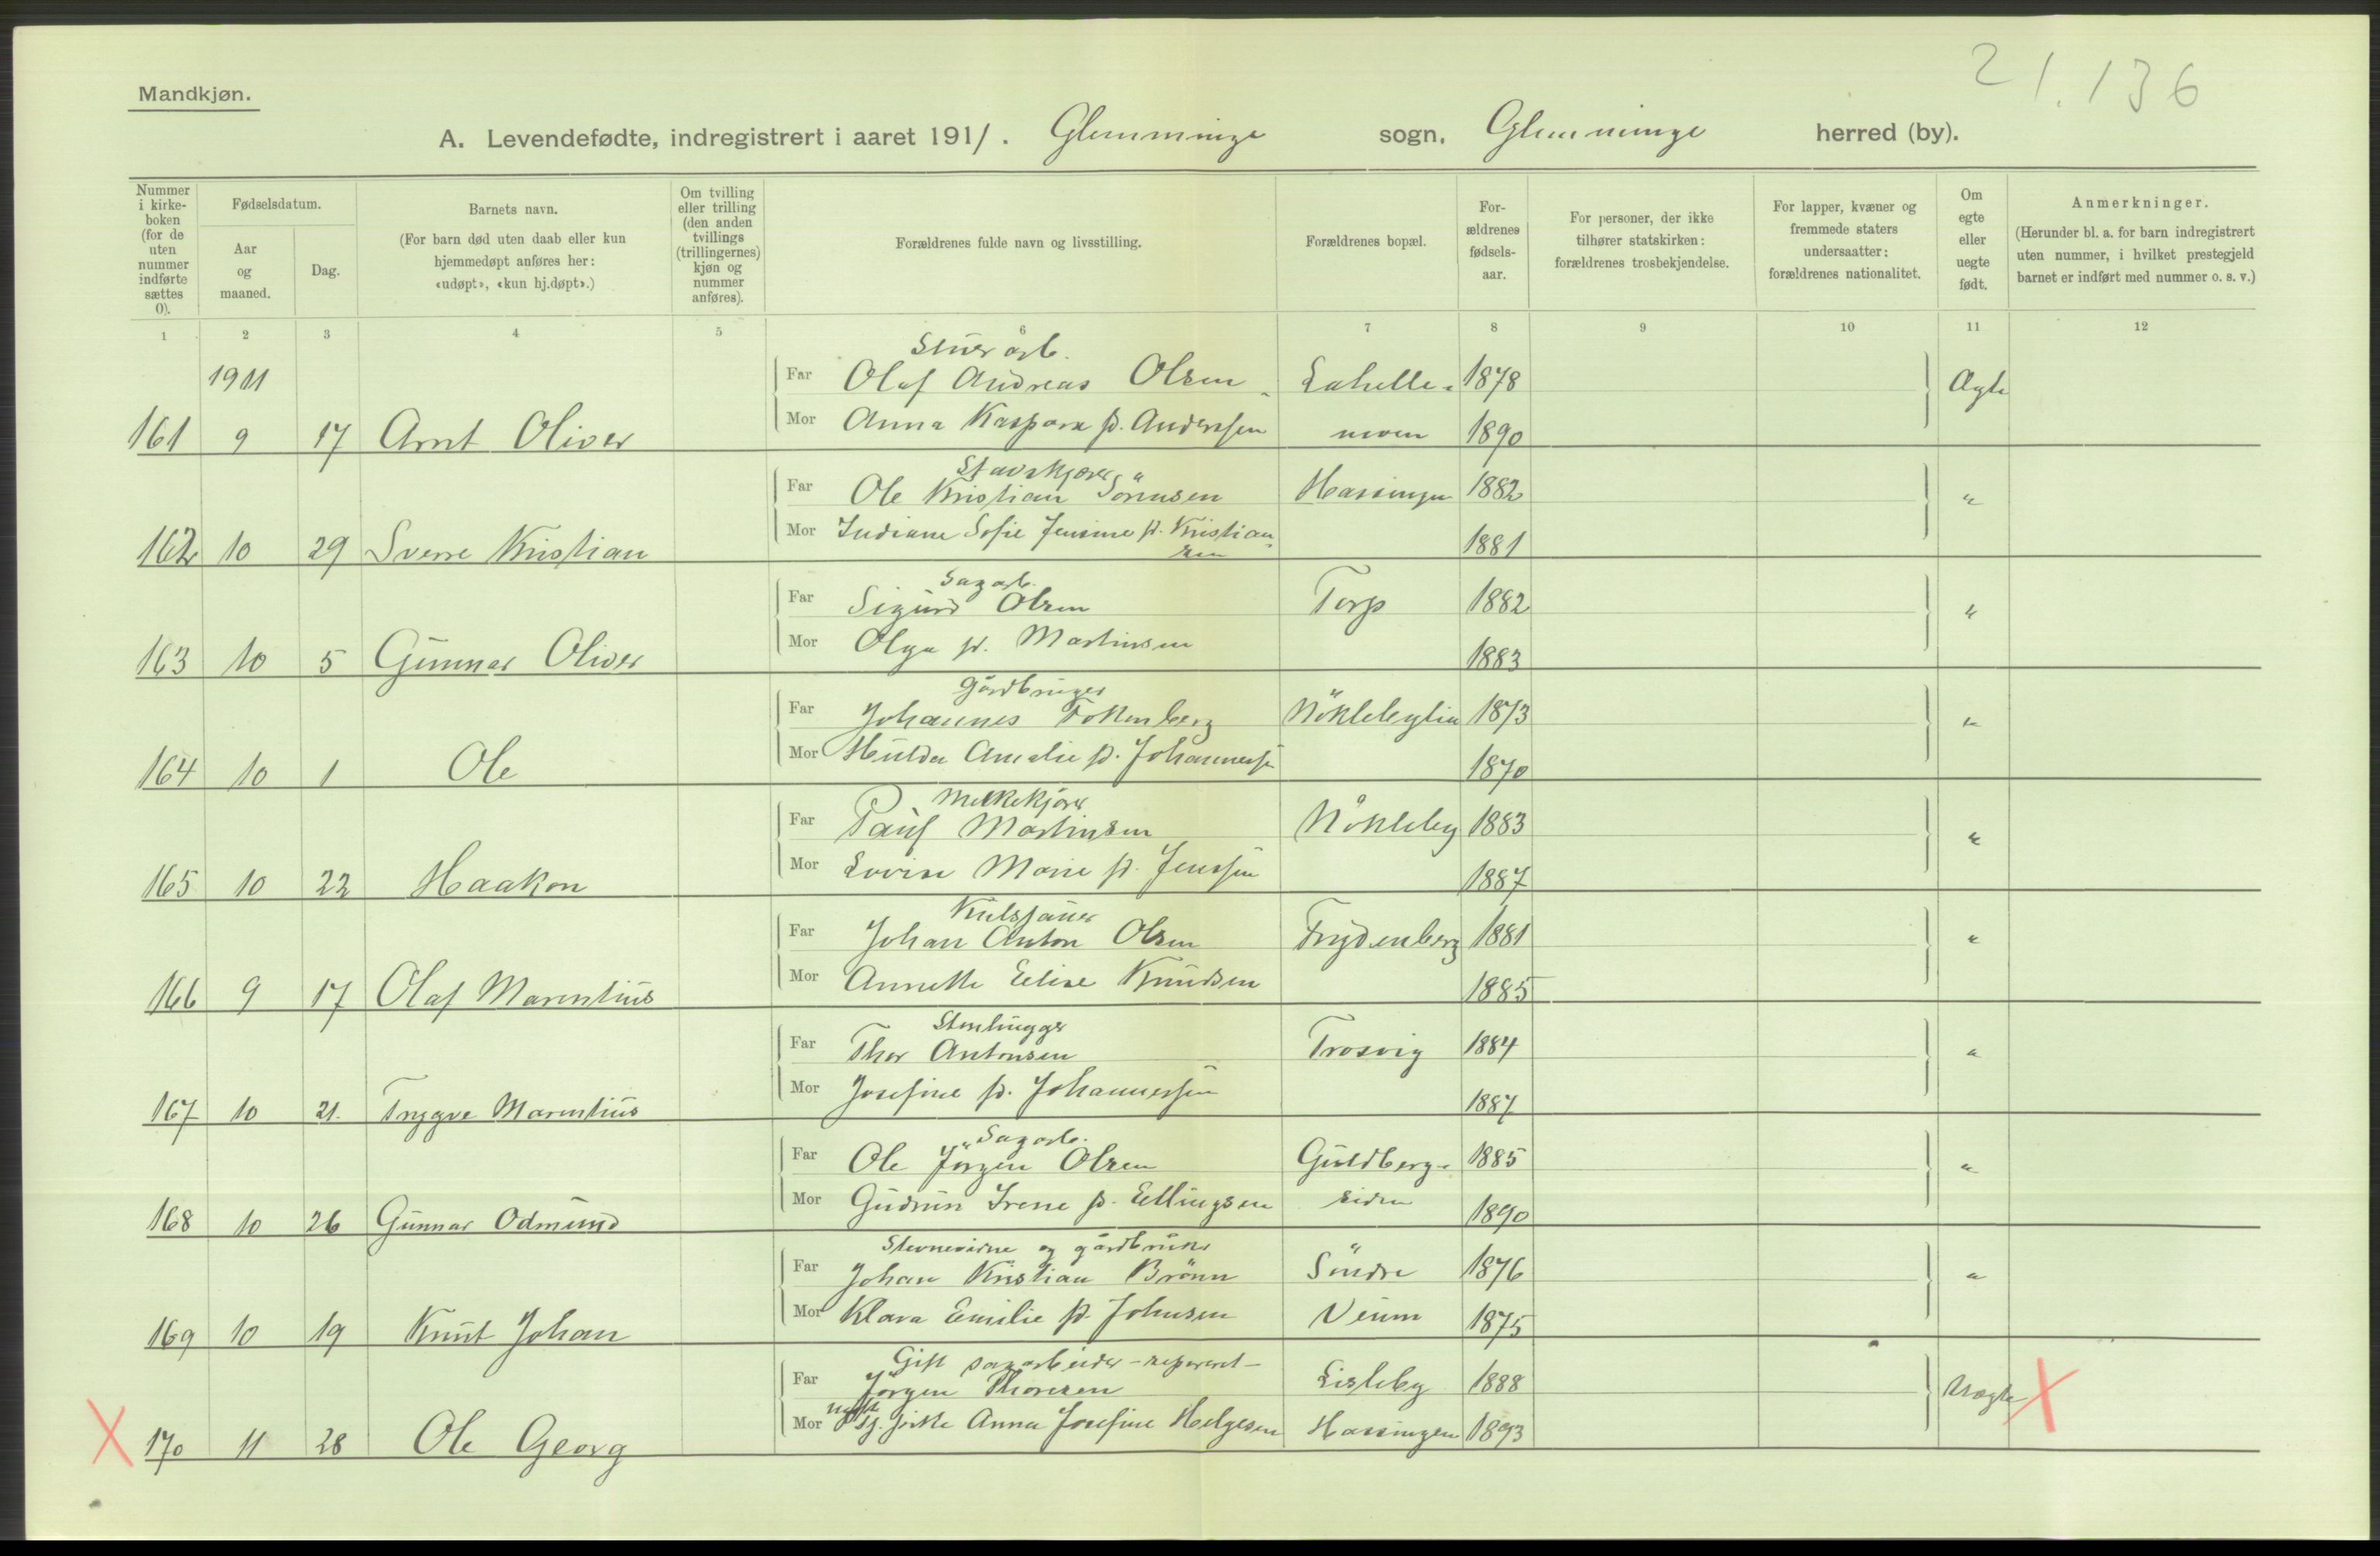 21.136
Mandkjøn.
A. Levendefødte, indregistrert i aaret 1911. Glemminge sogn, Glemminge herred (by).
Nummer i kirke-boken (for de uten nummer indførte sættes 0).
Fødselsdatum.
Aar og maaned.
Dag.
Barnets navn.
(For barn død uten daab eller kun hjemmedøpt anføres her: «udøpt», «kun hj.døpt».)
Om tvilling eller trilling (den anden tvillings (trillingernes) kjøn og nummer anføres).
Forældrenes fulde navn og livsstilling.
Forældrenes bopæl.
For-ældrenes fødsels-aar.
For personer, der ikke tilhører statskirken: forældrenes trosbekjendelse.
For lapper, kvæner og fremmede staters undersaatter: forældrenes nationalitet.
Om egte eller uegte født.
Anmerkninger.
(Herunder bl. a. for barn indregistrert uten nummer, i hvilket prestegjeld barnet er indført med nummer o. s. v.)
1 2 3 4 5 6 7 8 9 10 11 12
1911
arb.
Far Olaf Andreas Olsen Lahelle- 1878 Ægte
161 9 17 Arnt Oliver Mor Anna Kaspara f. Anderssen moen 1890
Stuerkjører
Far Ole Kristian Sörensen Hassingen 1882 "
162 10 29 Sverre Kristian Mor Indiane Sofie Jensine f. Kristiansen 1881
Sagarb.
Far Sigurd Olsen Torp 1882 "
163 10 5 Gunnar Oliver Mor Olga f. Martinsen 1883
Gårdbruger
Far Johannes Fokenberg Nöklebylia 1873 "
164 10 1 Ole Mor Hulda Amalie f. Johannessen 1870
Melkekjörer
Far Paul Martinsen Nökleby 1883 "
165 10 22 Haakon Mor Lovise Marie f. Jenssen 1887
Far Johan Anton Olsen Frydenberg 1881 "
166 9 17 Olaf Marentius Mor Annette Elise Knudsen 1885
Stenhugger
Far Thor Antonsen Trosvig 1884 "
167 10 21. Trygve Marentius Mor Josefine f. Johannessen 1887
Sagarb.
Far Ole Jörgen Olsen Guldberg- 1885 "
168 10 26 Gunnar Odmund Mor Gudrun Irene f. Ellingsen siden 1890
Stevnevidne og gårdbruker
Far Johan Kristian Brönn Söndre 1876 "
169 10 19 Knut Johan Mor Klara Emilie f. Johnsen Veum 1875
Gift sagarbeider - separert -
Far Jörgen Thoresen Lisleby 1888 Uægte X
X 170 11 28 Ole Georg Mor ugift tj. jente Anna Josefine Helgesen Hassingen 1893